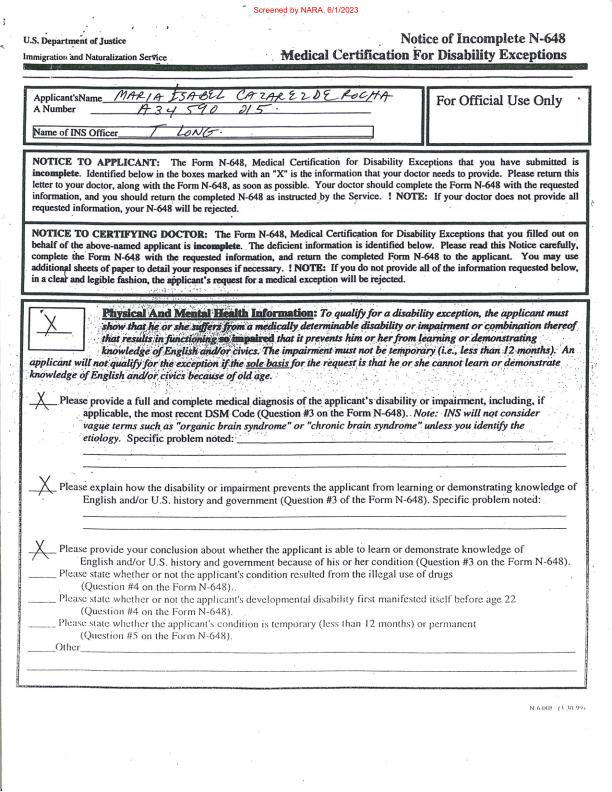 Screened by NARA, 6/1/2023
U.S. Department of Justice
Immigration and Naturalization Service
Notice of Incomplete N-648
Medical Certification For Disability Exceptions
Applicant'sName MARIA ISABEL CAZAREZ DE ROCHA
A Number A34 590 215
Name of INS Officer T LONG
For Official Use Only
NOTICE TO APPLICANT: The Form N-648, Medical Certification for Disability Exceptions that you have submitted is
incomplete. Identified below in the boxes marked with an "X" is the information that your doctor needs to provide. Please return this
letter to your doctor, along with the Form N-648, as soon as possible. Your doctor should complete the Form N-648 with the requested
information, and you should return the completed N-648 as instructed by the Service. ! NOTE: If your doctor does not provide all
requested information, your N-648 will be rejected.
NOTICE TO CERTIFYING DOCTOR: The Form N-648, Medical Certification for Disability Exceptions that you filled out on
behalf of the above-named applicant is incomplete. The deficient information is identified below. Please read this Notice carefully,
complete the Form N-648 with the requested information, and return the completed Form N-648 to the applicant. You may use
additional sheets of paper to detail your responses if necessary. ! NOTE: If you do not provide all of the information requested below,
in a clear and legible fashion, the applicant's request for a medical exception will be rejected.
X Physical And Mental Health Information: To qualify for a disability exception, the applicant must
show that he or she suffers from a medically determinable disability or impairment or combination thereof
that results in functioning so impaired that it prevents him or her from learning or demonstrating
knowledge of English and/or civics. The impairment must not be temporary (i.e., less than 12 months). An
applicant will not qualify for the exception if the sole basis for the request is that he or she cannot learn or demonstrate
knowledge of English and/or civics because of old age.
X Please provide a full and complete medical diagnosis of the applicant's disability or impairment, including, if
applicable, the most recent DSM Code (Question #3 on the Form N-648). Note: INS will not consider
vague terms such as "organic brain syndrome" or "chronic brain syndrome" unless you identify the
etiology. Specific problem noted:
X Please explain how the disability or impairment prevents the applicant from learning or demonstrating knowledge of
English and/or U.S. history and government (Question #3 of the Form N-648). Specific problem noted:
X Please provide your conclusion about whether the applicant is able to learn or demonstrate knowledge of
English and/or U.S. history and government because of his or her condition (Question #3 on the Form N-648).
Please state whether or not the applicant's condition resulted from the illegal use of drugs
(Question #4 on the Form N-648)..
Please state whether or not the applicant's developmental disability first manifested itself before age 22
(Question #4 on the Form N-648).
Please state whether the applicant's condition is temporary (less than 12 months) or permanent
(Question #5 on the Form N-648).
Other